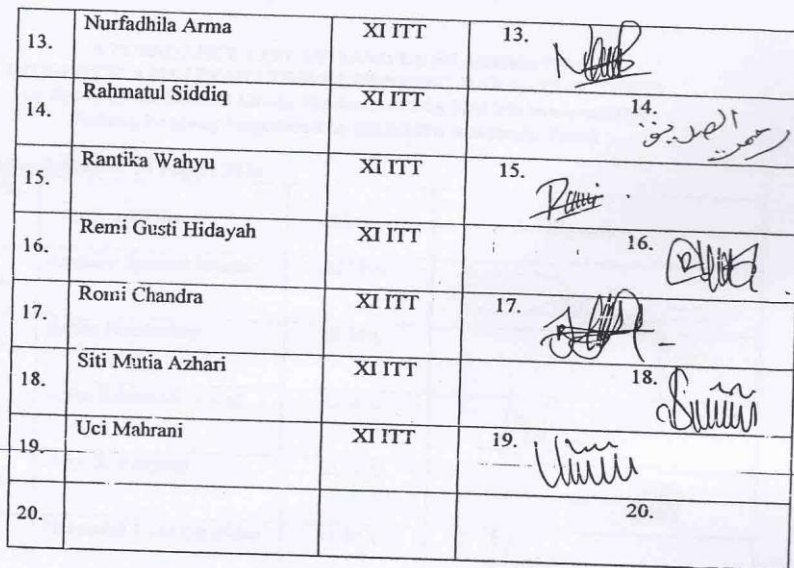 13. Nurfadhila Arma XI ITT 13.
14. Rahmatul Siddiq XI ITT 14. رحمت الصديق
15. Rantika Wahyu XI ITT 15.
16. Remi Gusti Hidayah XI ITT 16.
17. Romi Chandra XI ITT 17.
18. Siti Mutia Azhari XI ITT 18.
19. Uci Mahrani XI ITT 19.
20. 20.